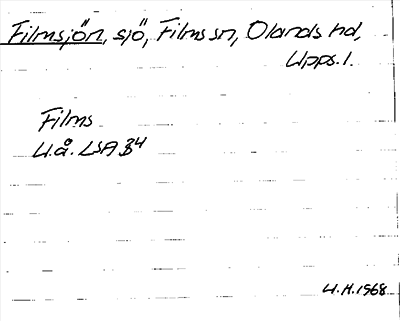 Filmsjön, sjö, Films sn, Olands hd,
Upps. l.
Films
U.å. LSA B4
U.H. 1968